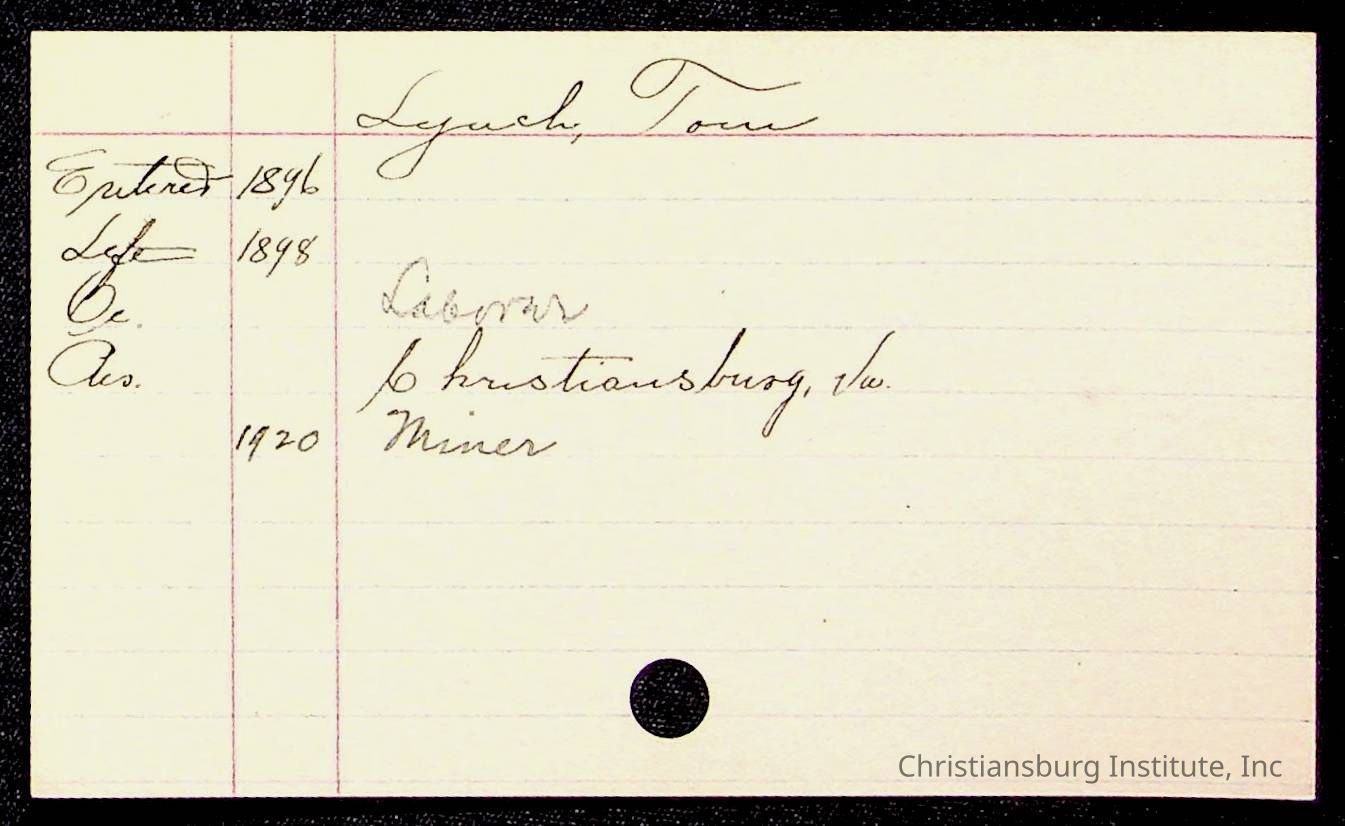 Lynch, Tom
Entered 1896
Left 1898
Oc. Laborer
Res. Christiansburg, Va.
1920 Miner
Christiansburg Institute, Inc